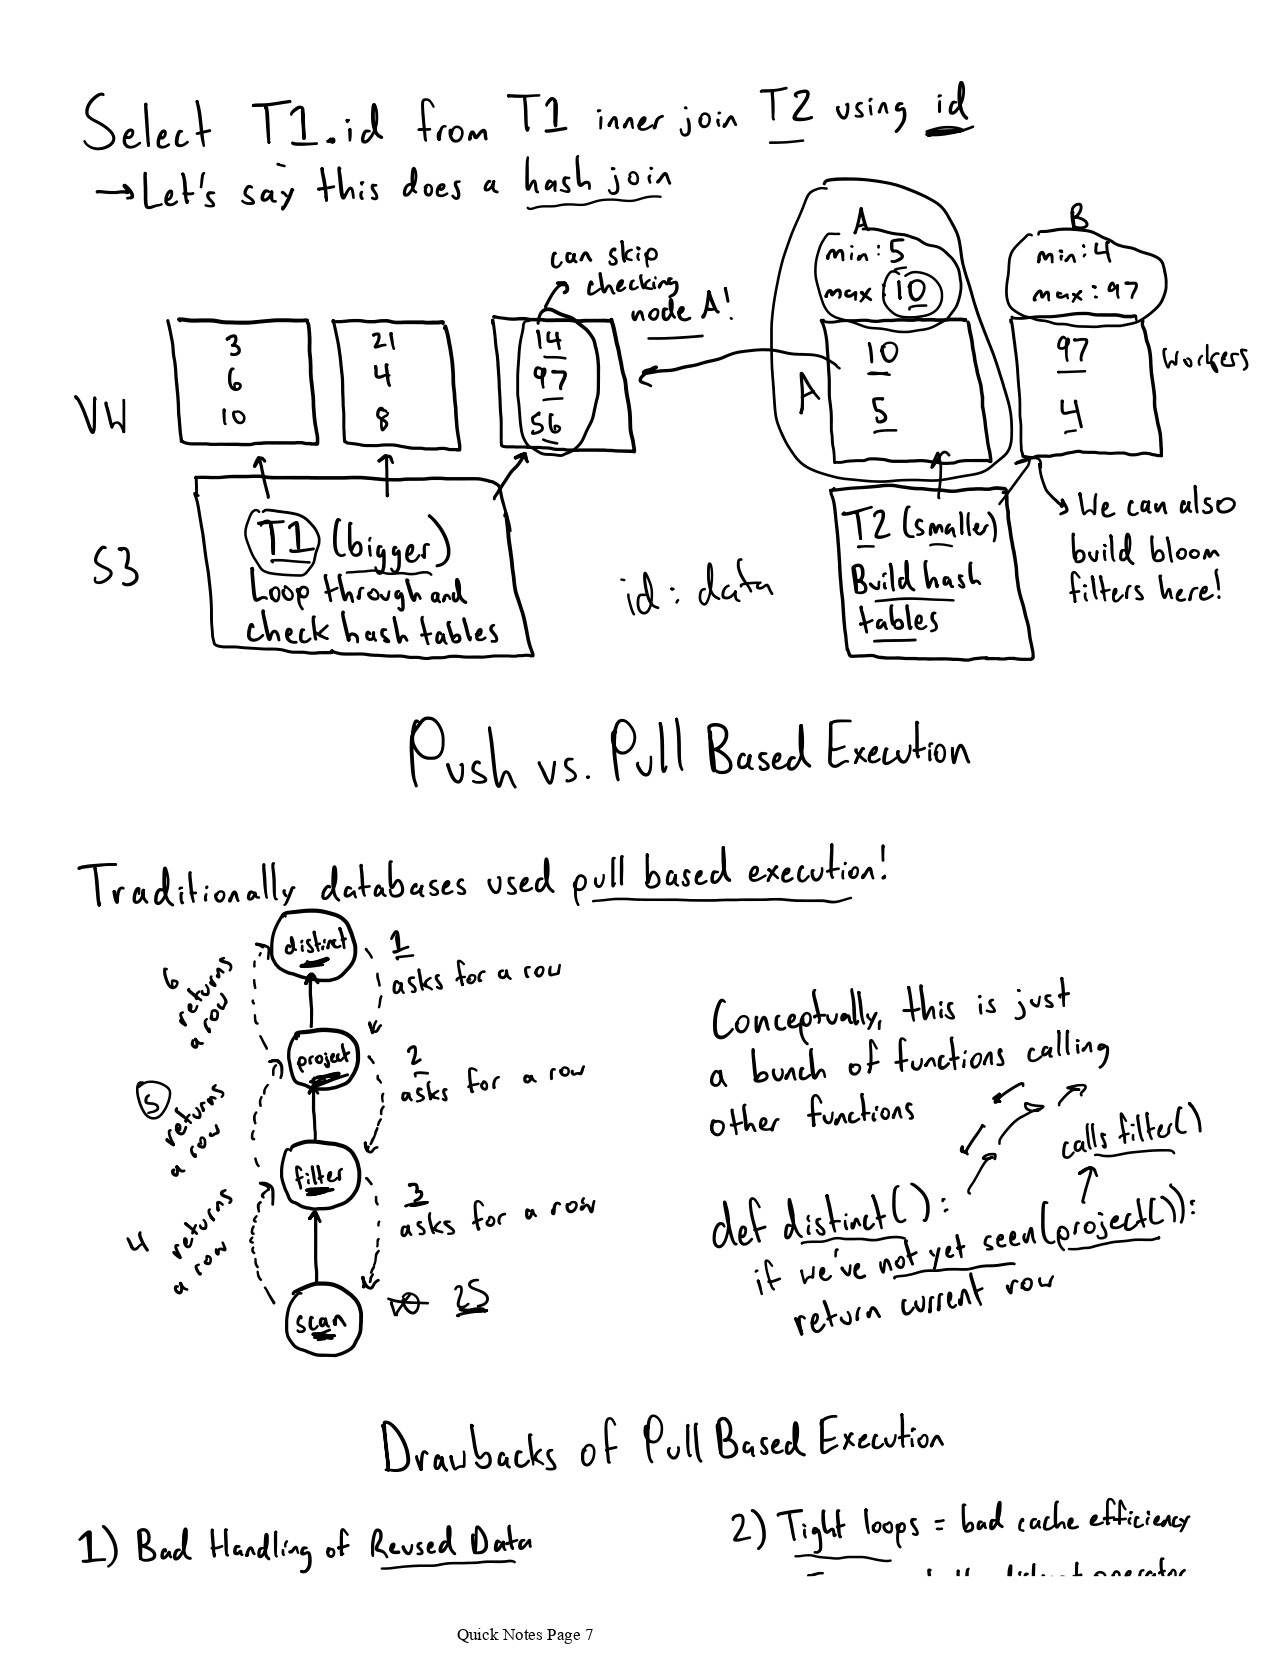 Select T1.id from T1 inner join T2 using id
→Let's say this does a hash join
can skip
checking
node A!
A
min: 5
max: 10
B
min: 4
max: 97
VW
3
6
10
21
4
8
14
97
56
A
10
5
97
4
Workers
S3
T1 (bigger)
Loop through and
check hash tables
id: data
T2 (smaller)
Build hash
tables
We can also
build bloom
filters here!
Push vs. Pull Based Execution
Traditionally databases used pull based execution!
distinct
1
asks for a row
6
returns
a row
project
2
asks for a row
5
returns
a row
filter
3
asks for a row
4
returns
a row
scan
25
Conceptually, this is just
a bunch of functions calling
other functions
calls filter()
def distinct():
if we've not yet seen(project()):
return current row
Drawbacks of Pull Based Execution
1) Bad Handling of Reused Data
2) Tight loops = bad cache efficiency
Quick Notes Page 7